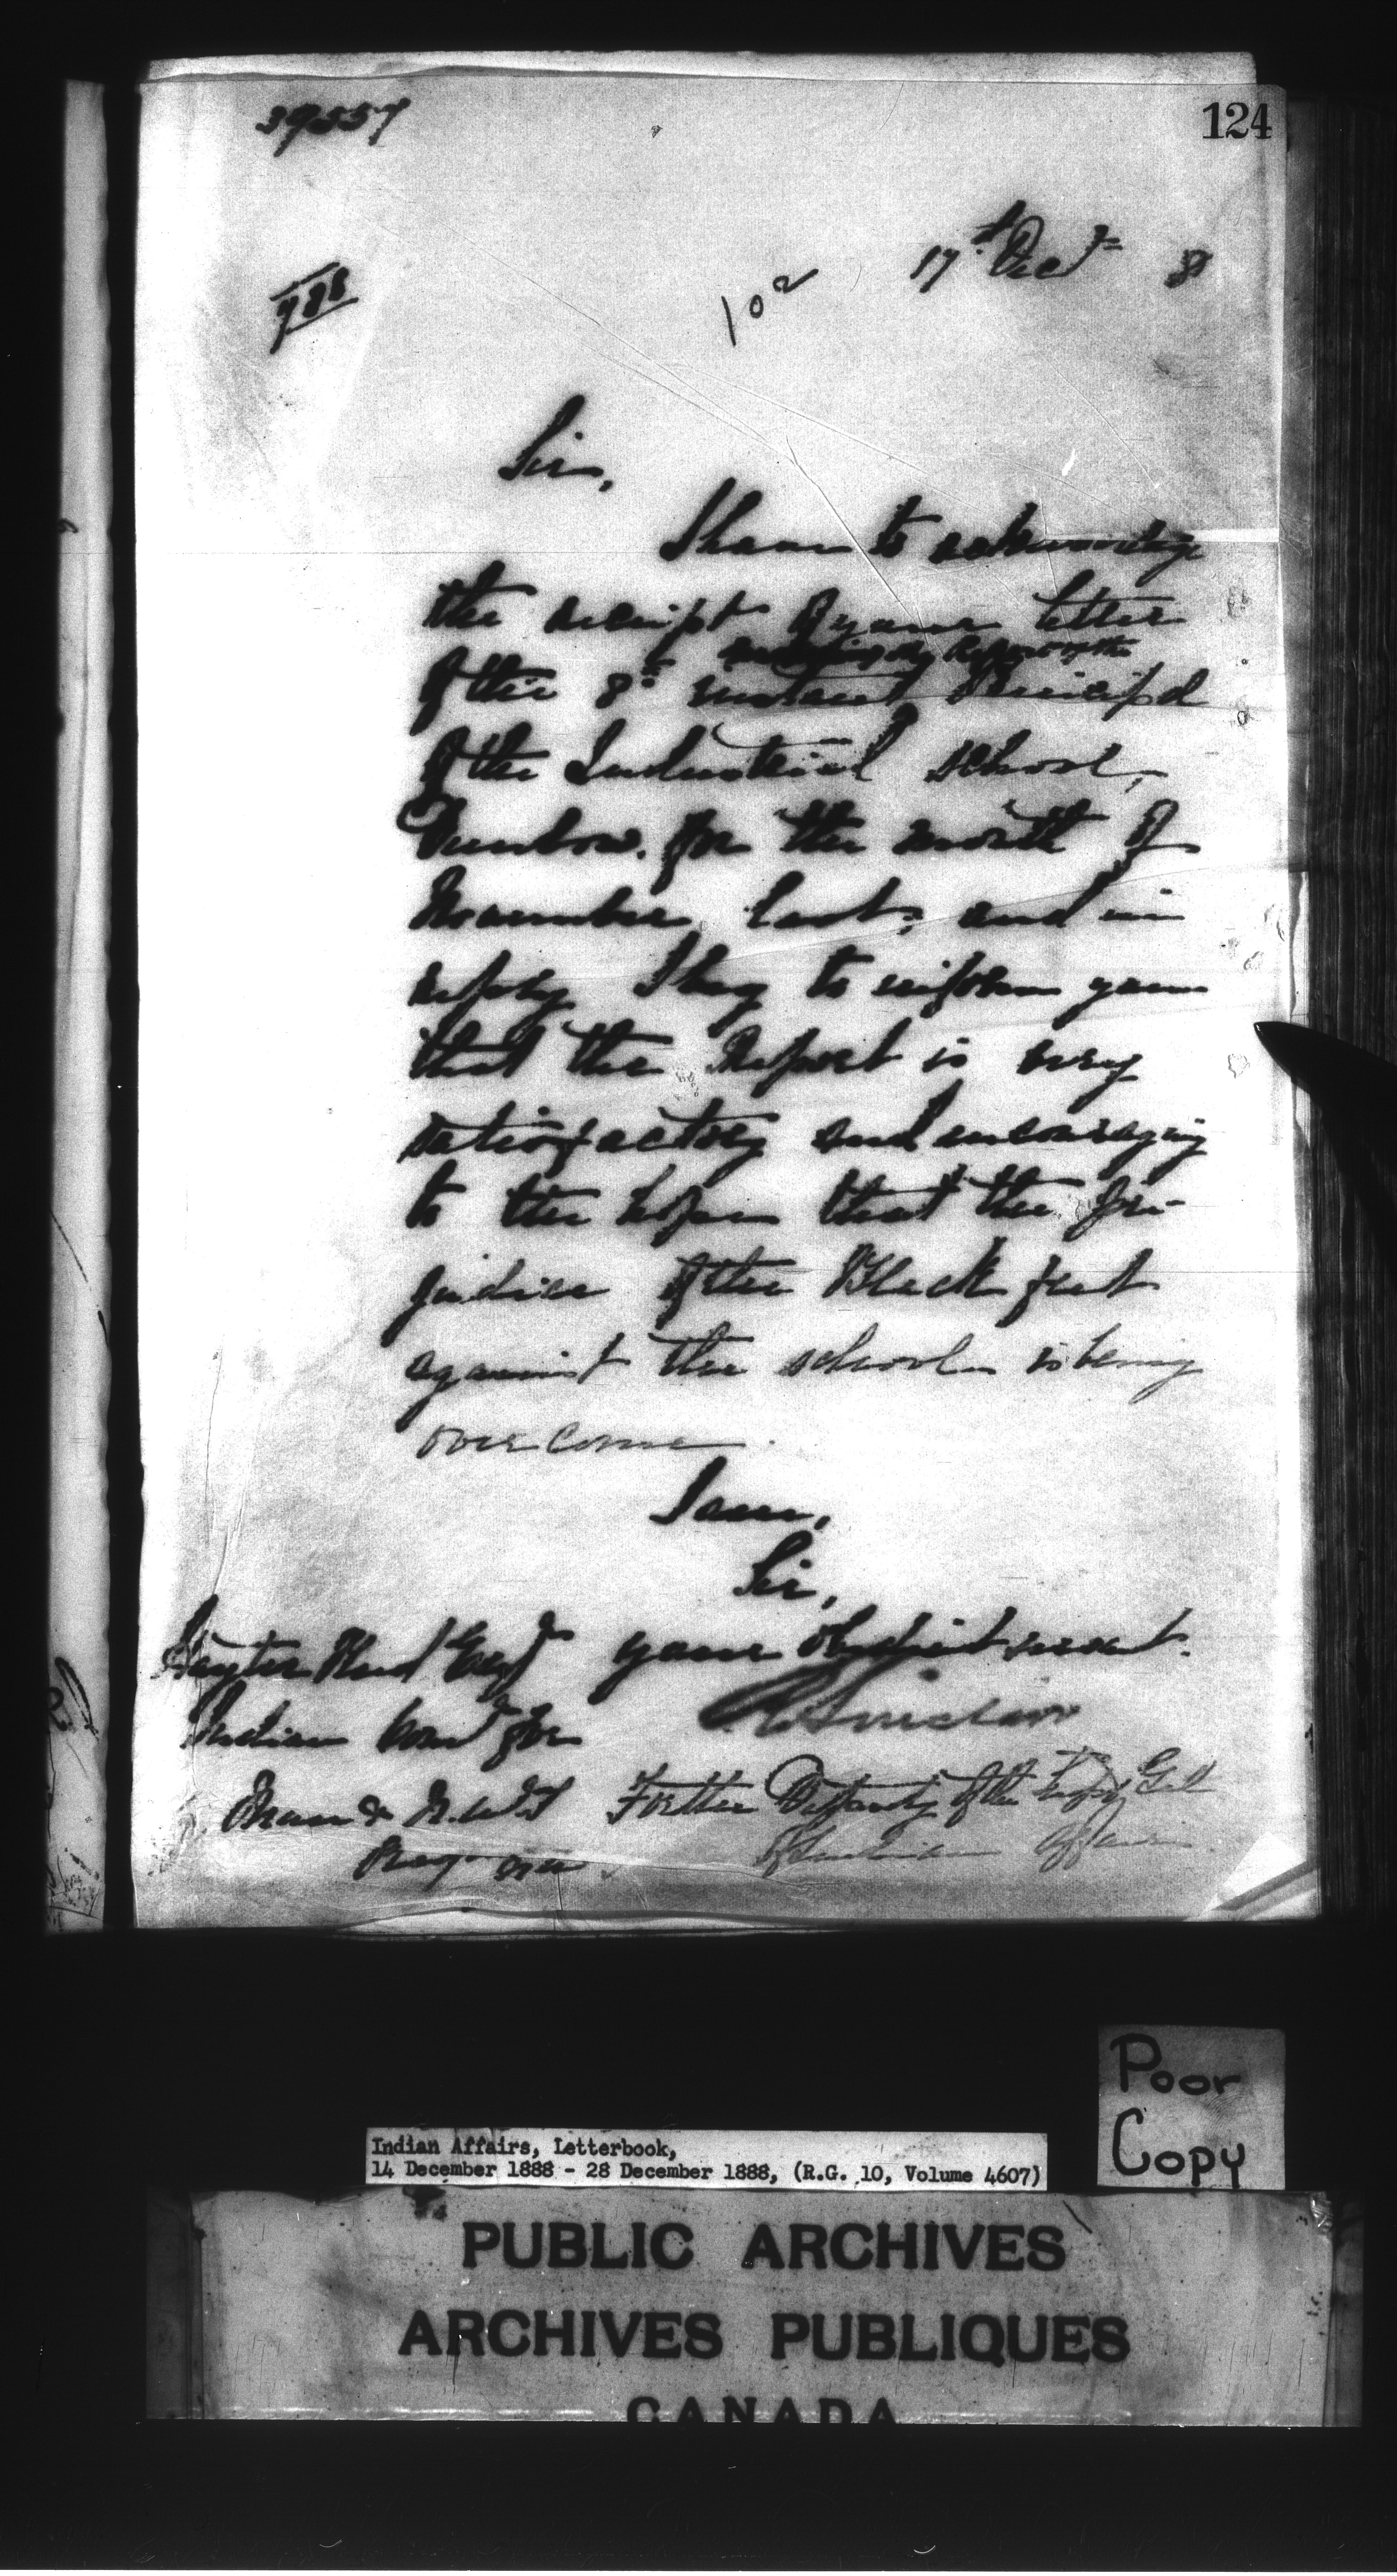 39557
124
17th Decr 8
Sir,
I have to acknowledge
the receipt of your letter
enclosing Report of the
of the 8th instant Principal
of the Industrial School,
Dunbow, for the month of
November last; and in
reply I beg to inform you
that the Report is very
satisfactory and encouraging
to the hope that the pre-
judice of the Blackfeet
against the schools is being
overcome.
I am,
Sir,
Your obedient servant.
Hayter Reed Esqr
R Sinclair
Indian Comr for
Man & N.W.T
For the Deputy of the Supt Genl
of Indian Affairs
Regina
Poor
Copy
Indian Affairs, Letterbook,
14 December 1888 - 28 December 1888, (R.G. 10, Volume 4607)
PUBLIC ARCHIVES
ARCHIVES PUBLIQUES
CANADA